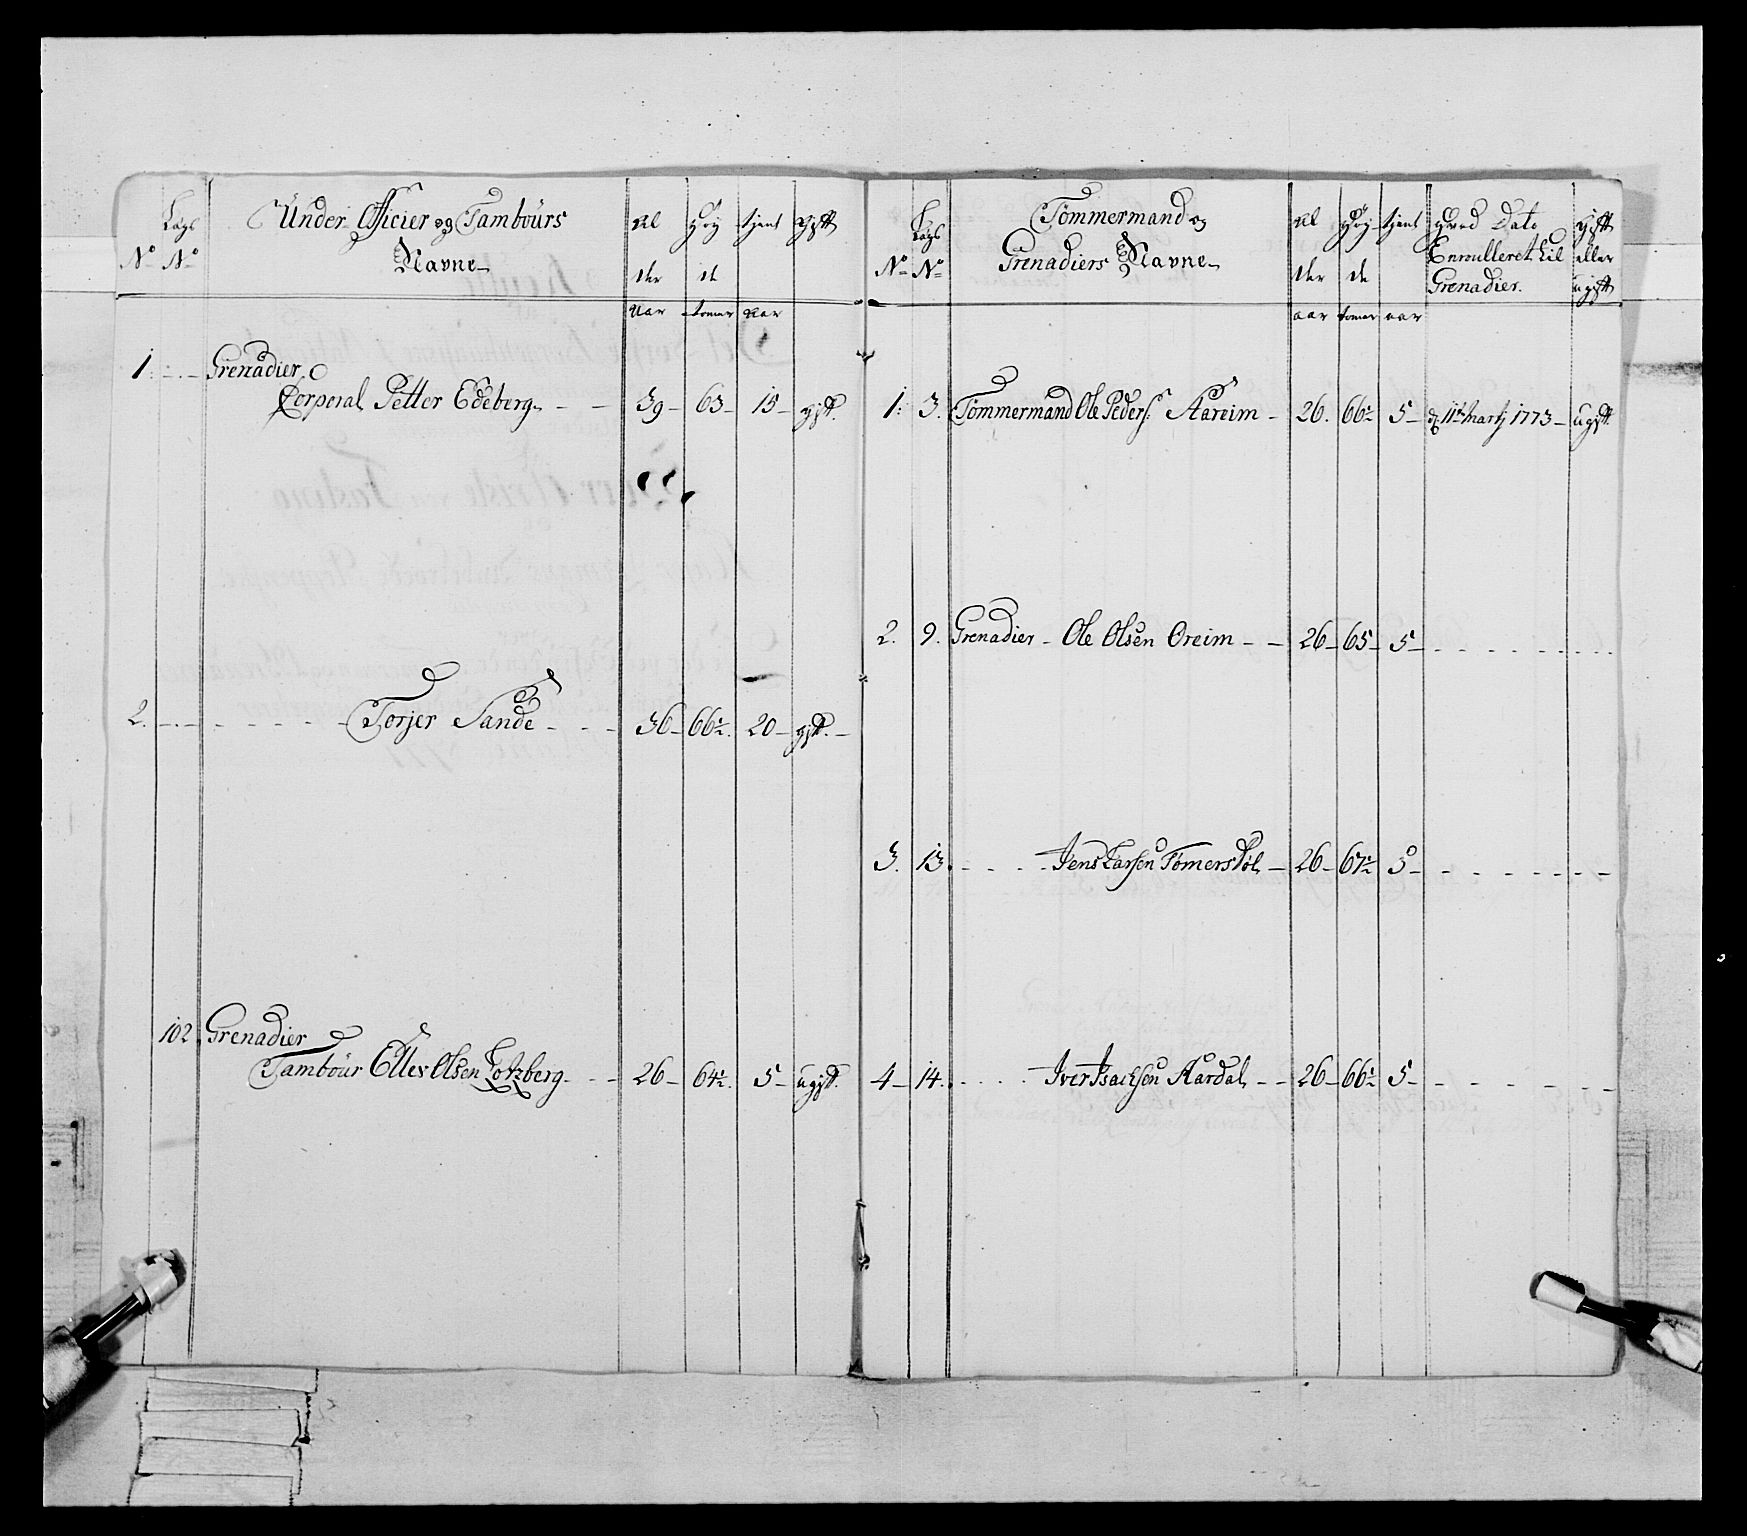 Lægs Under Officier og Tambours Al Høy tjent gift
No No Navne der de
Aar tomer Aar
1. Grenadier
Corporal Petter Edeberg 39 63 15 gift.
2. Torjer Sande 36 66½ 20 gift.
102 Grenadier
Tambour Elles Olsen Lotzberg 26 64½ 5 ugift.
Lægs Tømmermand og Al Høy tjent Hvad Dato gift
No No Grenadiers Navne der de Enroulleret til eller
Grenadier. ugift
aar tomer aar
1. 3. Tømmermand Ole Peders: Aareim 26. 66½ 5 d 11te Martj 1773 ugift.
2. 9. Grenadier Ole Olsen Oreim 26 65 5
3. 13. Jens Larsen Tomersdøl 26 67½ 5
4 14. Iver Isachsen Aardal 26 66½ 5